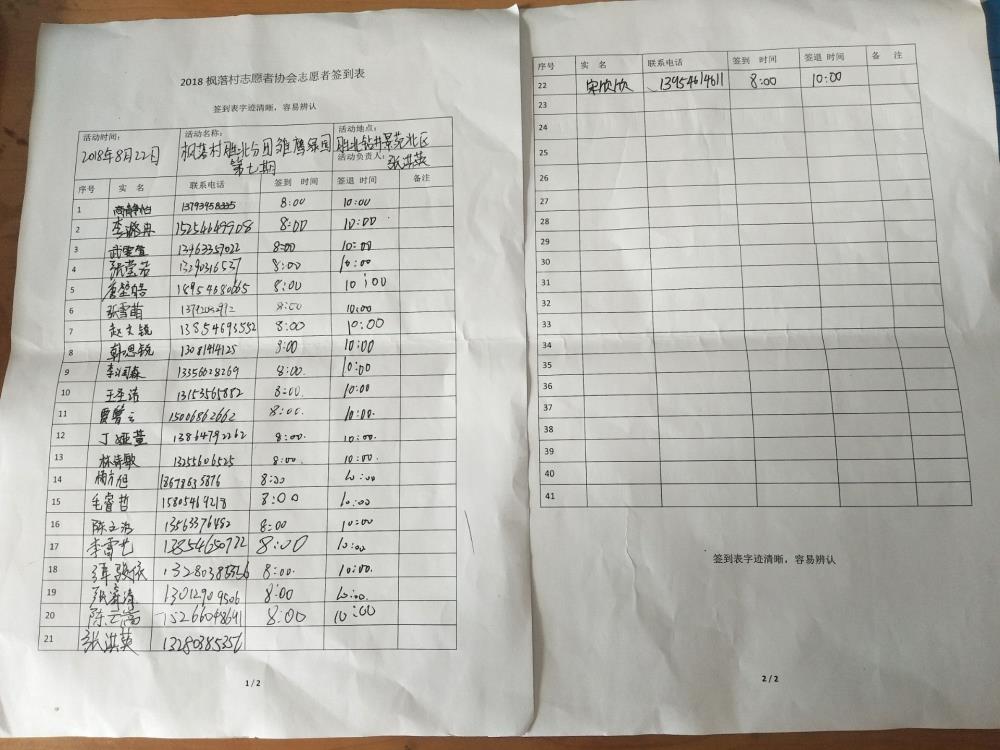 2018 枫落村志愿者协会志愿者签到表
签到表字迹清晰，容易辨认
活动时间： 活动名称： 活动地点：
2018年8月22日 枫落村胜北分团雏鹰绿园 胜北钻井景苑北区
第七期 活动负责人： 张淇英
序号 实 名 联系电话 签到 时间 签退 时间 备注
1 8:00 10:00
2 15254649908 8:00 10:00
3 13963359022 8:00 10:00
4 张莹若 13290316537 8:00 10:00
5 18954680665 8:00 10:00
6 张雪萌 8:00 10:00
7 赵文锐 13854693552 8:00 10:00
8 韩恩锐 8:00 10:00
9 李润森 13356028269 8:00. 10:00
10 王圣涛 13153565882 8:00. 10:00
11 15006862662 8:00. 10:00.
12 丁娅萱 13864792262 8:00. 10:00.
13 林诗歌 13255606525 8:00. 10:00.
14 杨方旭 18678635876 8:00 10:00
15 毛睿哲 15805469218 8:00 10:00
16 13563376482 8:00 10:00
17 李雪艺 13854650722 8:00 10:00
18 8:00. 10:00.
19 13012909506 8:00 10:00.
20 15266048641 8:00 10:00
21 张淇英 13280385356
1 / 2
序号 实 名 联系电话 签到 时间 签退 时间 备 注
22 宋欣欣 13954614611 8:00 10:00
23
24
25
26
27
28
29
30
31
32
33
34
35
36
37
38
39
40
41
签到表字迹清晰，容易辨认
2 / 2